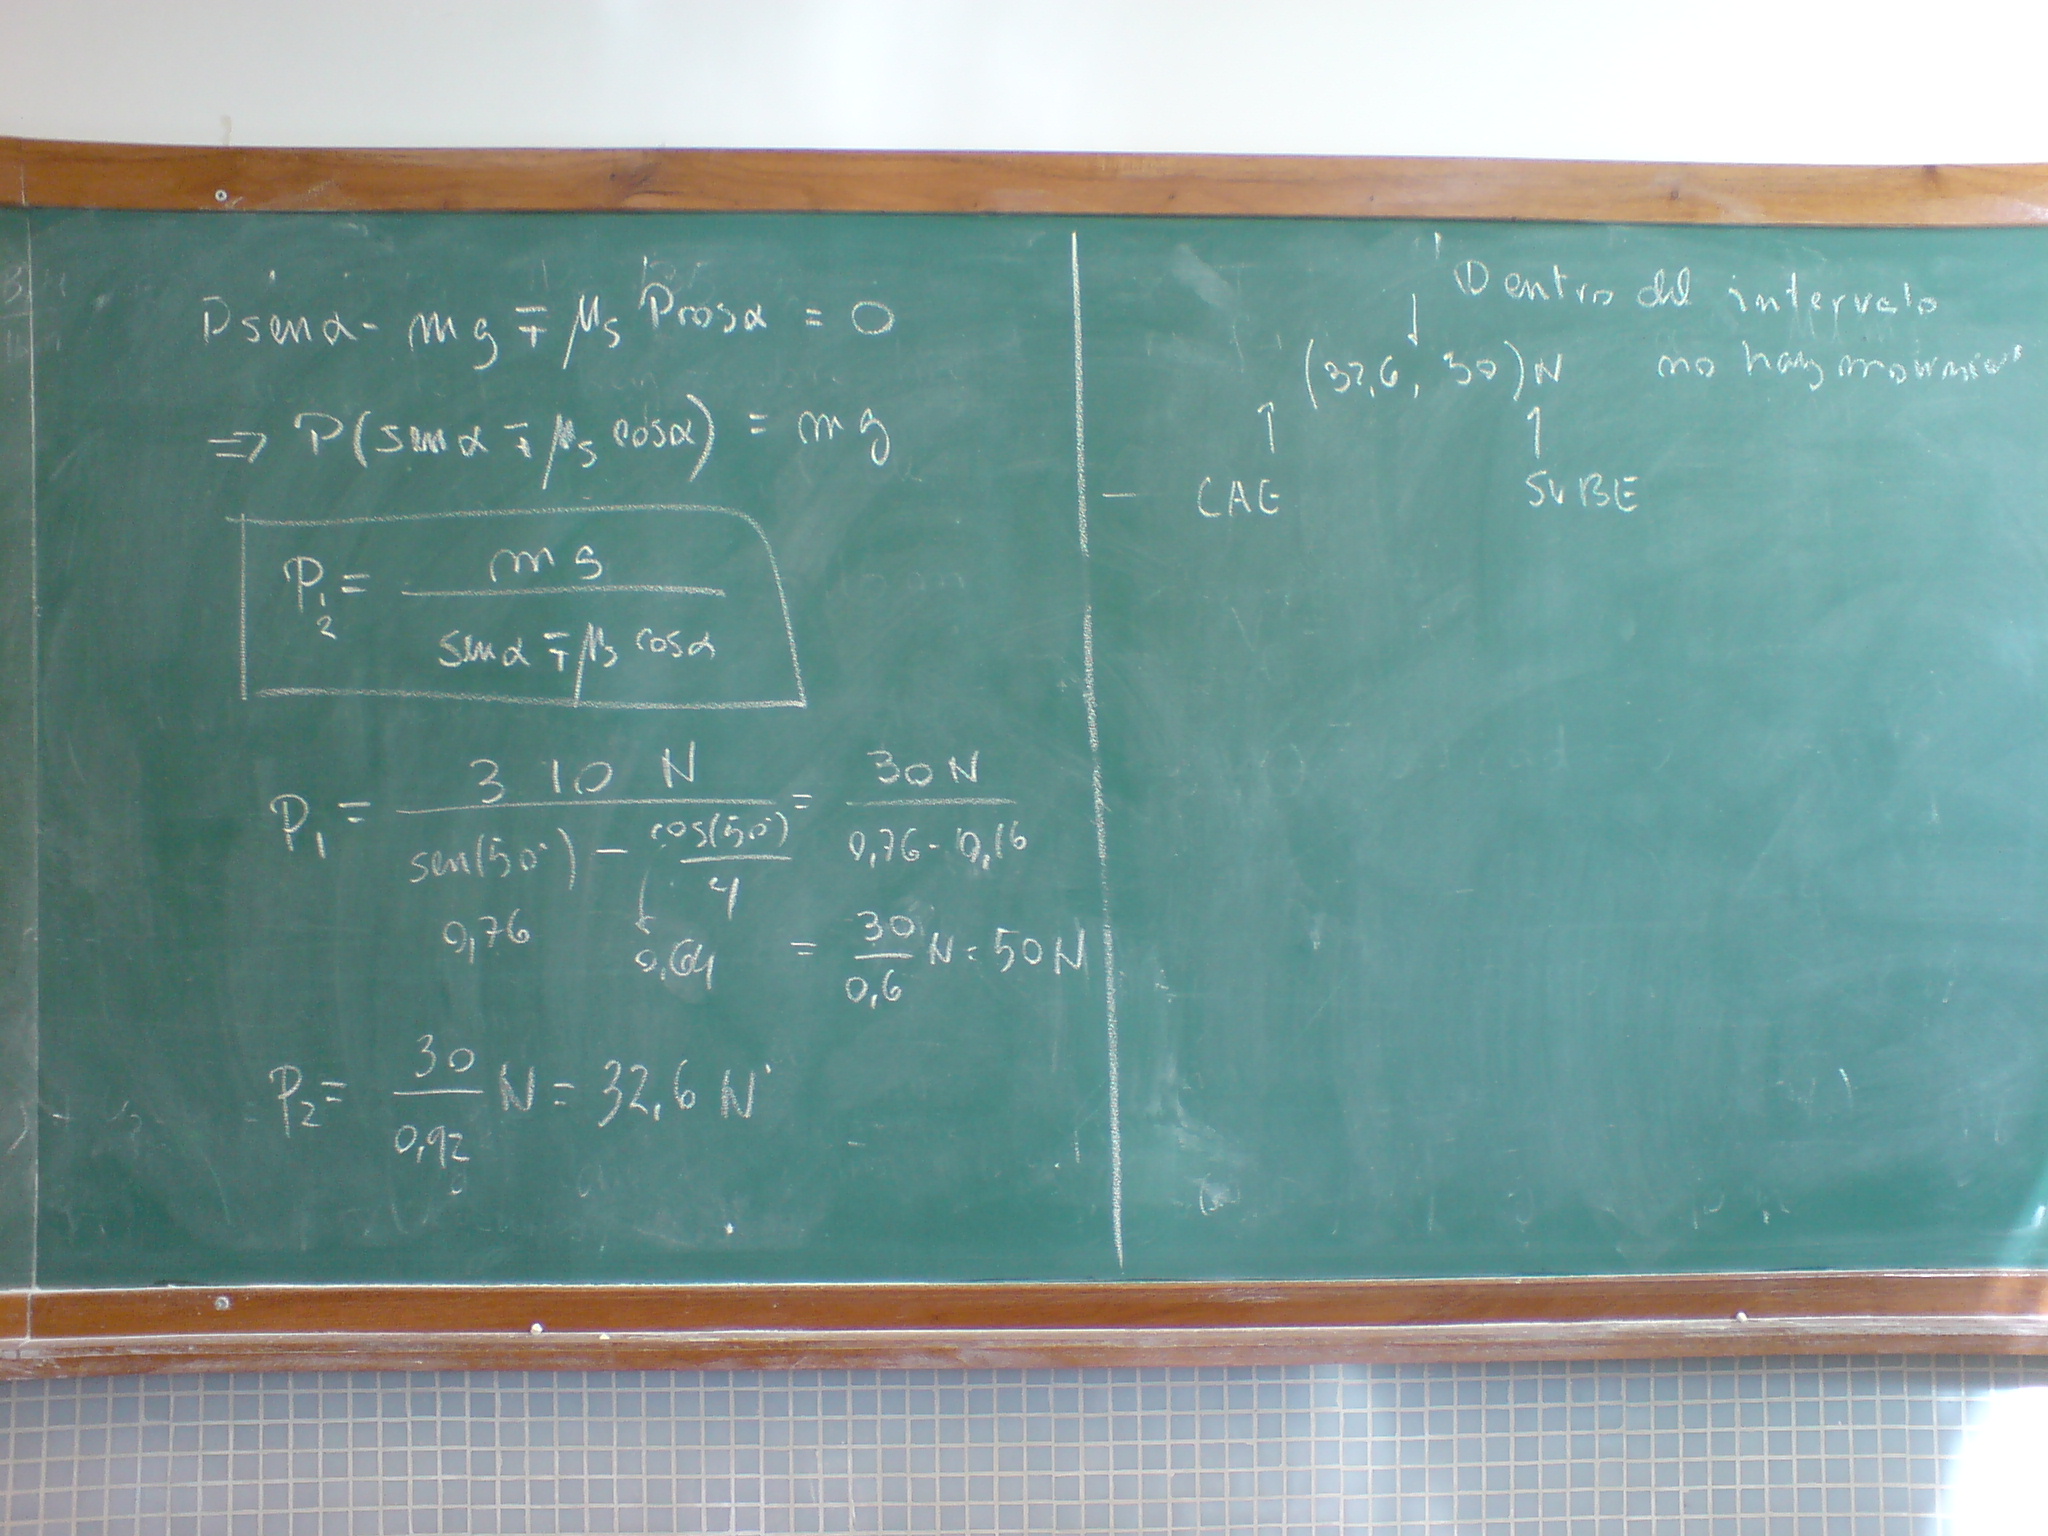 P sen α - mg ∓ μs P cos α = 0
⇒ P(sen α ∓ μs cos α) = mg
P1,2 = mg / (sen α ∓ μs cos α)
P1 = 3 10 N / (sen(50°) - cos(50°)/4) = 30 N / (0,76 - 0,16)
0,76 0,64 = 30/0,6 N = 50 N
P2 = 30/0,92 N = 32,6 N
Dentro del intervalo
(32,6, 30) N no hay
↑ ↑
CAE SUBE